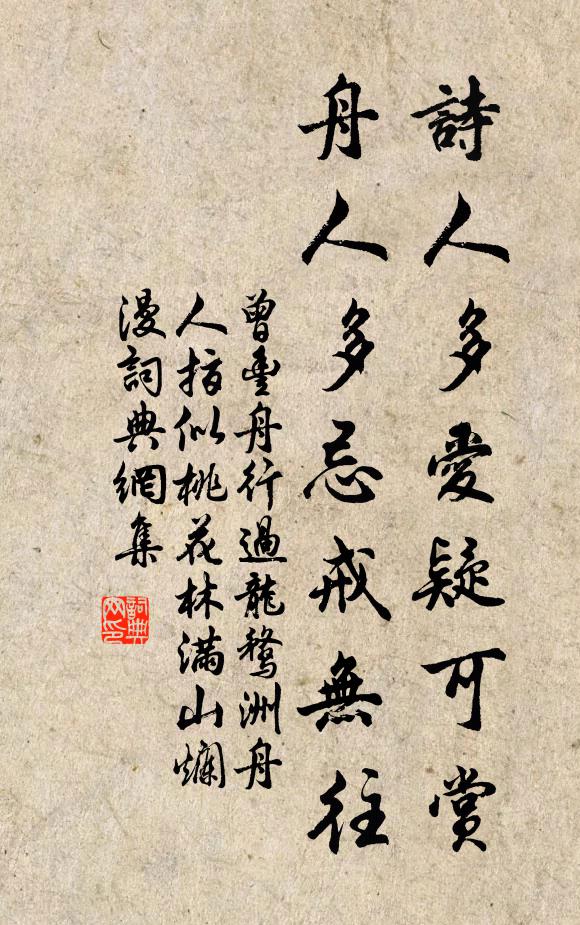 詩人多愛疑可賞
舟人多忌戒無往
曾豐舟行過龍鶩洲舟
人指似桃花林滿山爛
漫詞典網集
詞典
网印